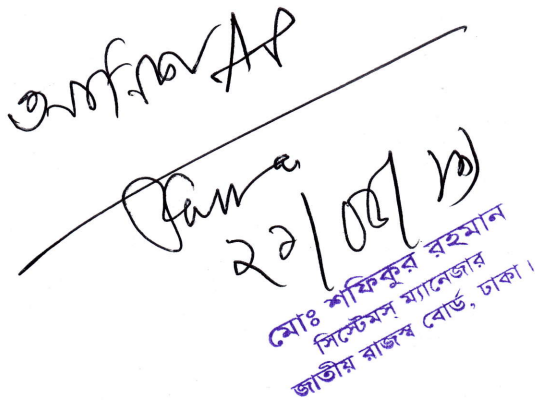 AP
২১/০৫/১৭
মোঃ শফিকুর রহমান
সিস্টেমস্ ম্যানেজার
জাতীয় রাজস্ব বোর্ড, ঢাকা।